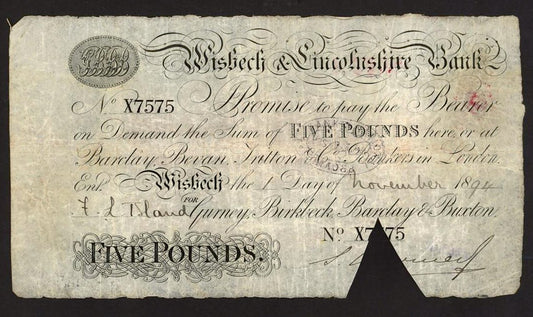 Wisbech & Lincolnshire Bank
No X7575 I Promise to pay the Bearer
on Demand the Sum of FIVE POUNDS here, or at
Barclay, Bevan, Tritton & Co. Bankers in London.
Entd. Wisbech the 1 Day of November 1894
FOR
Gurney, Birkbeck, Barclay & Buxton.
No X7 75
FIVE POUNDS.